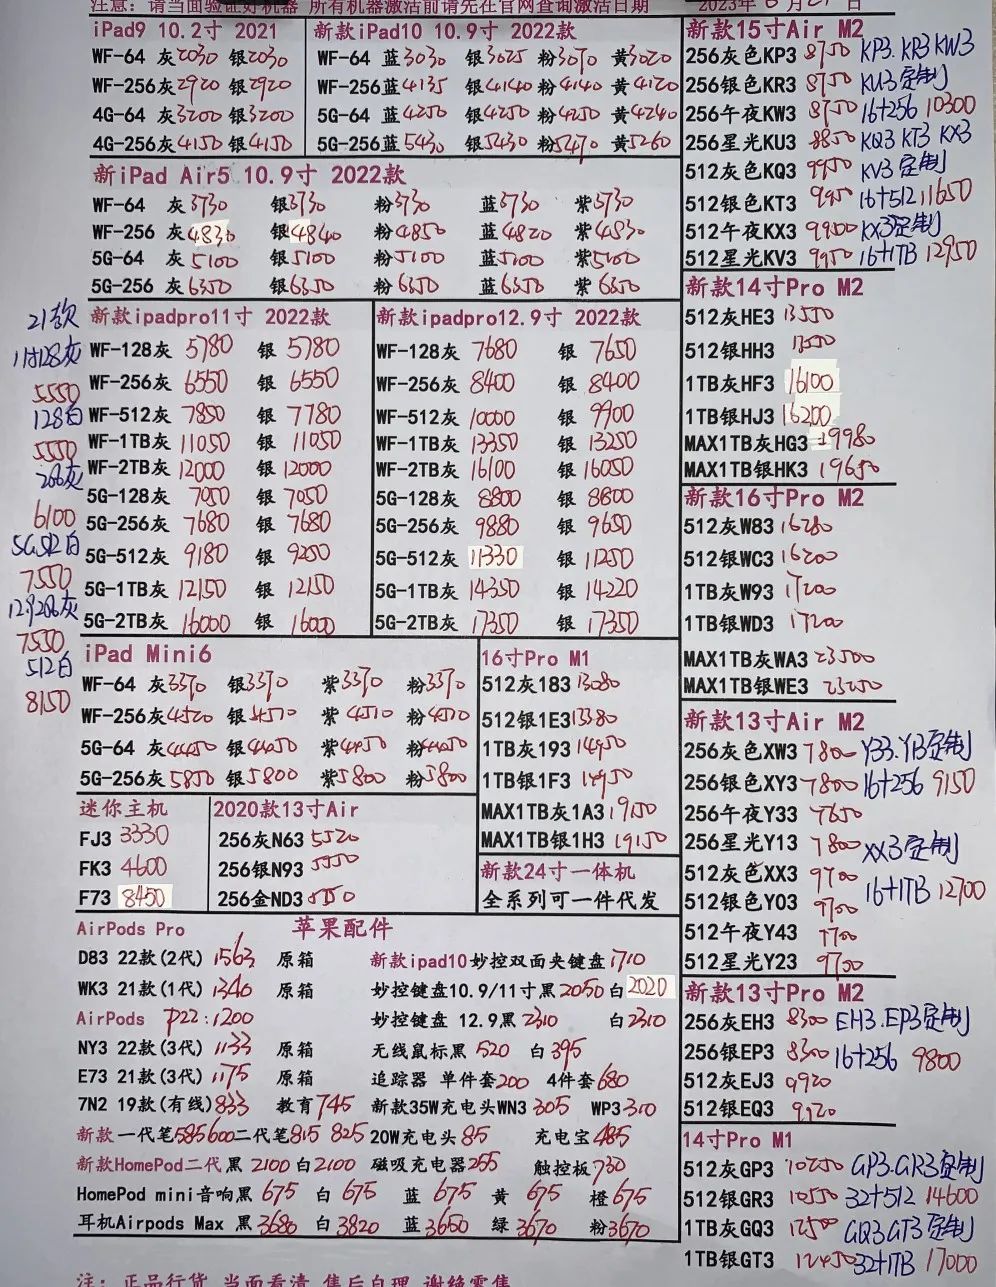 注意：请当面验证好机器 所有机器激活前请先在官网查询激活日期
2023年6月21日
iPad9 10.2寸 2021
WF-64 灰2030 银2030
WF-256灰2920 银2920
4G-64 灰3200 银3200
4G-256灰4150 银4150
新款iPad10 10.9寸 2022款
WF-64 蓝3030 银3025 粉3070 黄3020
WF-256蓝4135 银4140 粉4140 黄4120
5G-64 蓝4250 银4250 粉4250 黄4240
5G-256蓝5430 银5430 粉5470 黄5260
新iPad Air5 10.9寸 2022款
WF-64 灰3730 银3730 粉3730 蓝3730 紫3730
WF-256 灰4830 银4840 粉4850 蓝4820 紫4830
5G-64 灰5100 银5100 粉5100 蓝5100 紫5100
5G-256 灰6350 银6350 粉6350 蓝6350 紫6350
21款
11寸128灰
5550
128白
5550
256灰
6100
5G512白
7550
12.9256灰
7550
512白
8150
新款ipadpro11寸 2022款
WF-128灰 5780 银 5780
WF-256灰 6550 银 6550
WF-512灰 7850 银 7780
WF-1TB灰 11050 银 11050
WF-2TB灰 12000 银 12000
5G-128灰 7050 银 7050
5G-256灰 7680 银 7680
5G-512灰 9180 银 9250
5G-1TB灰 12150 银 12150
5G-2TB灰 16000 银 16000
新款ipadpro12.9寸 2022款
WF-128灰 7680 银 7650
WF-256灰 8400 银 8400
WF-512灰 10000 银 9900
WF-1TB灰 13350 银 13250
WF-2TB灰 16100 银 16050
5G-128灰 8800 银 8800
5G-256灰 9880 银 9650
5G-512灰 11330 银 11250
5G-1TB灰 14350 银 14220
5G-2TB灰 17350 银 17350
iPad Mini6
WF-64 灰3370 银3370 紫3370 粉3370
WF-256灰4520 银4510 紫4510 粉4510
5G-64 灰4450 银4450 紫4450 粉4450
5G-256灰5850 银5800 紫5800 粉5800
迷你主机
FJ3 3330
FK3 4600
F73 8450
2020款13寸Air
256灰N63 5520
256银N93 5550
256金ND3 5550
16寸Pro M1
512灰183 13080
512银1E3 13380
1TB灰193 14950
1TB银1F3 14950
MAX1TB灰1A3 19150
MAX1TB银1H3 19150
新款24寸一体机
全系列可一件代发
苹果配件
AirPods Pro
D83 22款(2代) 1563 原箱
WK3 21款(1代) 1340 原箱
AirPods P22:1200
NY3 22款(3代) 1133 原箱
E73 21款(3代) 1175 原箱
7N2 19款(有线)833 教育745
新款一代笔585 600二代笔815 825
新款HomePod二代 黑 2100 白2100
HomePod mini音响黑 675 白 675 蓝 675 黄 675 橙675
耳机Airpods Max 黑3680 白3820 蓝3650 绿3670 粉3670
新款ipad10妙控双面夹键盘1710
妙控键盘10.9/11寸黑2050 白2020
妙控键盘 12.9黑2310 白2310
无线鼠标黑 520 白395
追踪器 单件套200 4件套680
新款35W充电头WN3 305 WP3 310
20W充电头85 充电宝485
磁吸充电器255 触控板730
新款15寸Air M2
256灰色KP3 8750 KP3.KR3 KW3
256银色KR3 8750 KU3定制
256午夜KW3 8750 16+256 10300
256星光KU3 8850 KQ3 KT3 KX3
512灰色KQ3 9950 KV3定制
512银色KT3 9950 16+512 11650
512午夜KX3 9950 KX3定制
512星光KV3 9950 16+1TB 12950
新款14寸Pro M2
512灰HE3 13550
512银HH3
1TB灰HF3 16100
1TB银HJ3 16200
MAX1TB灰HG3 19980
MAX1TB银HK3 19650
新款16寸Pro M2
512灰W83 16280
512银WC3 16200
1TB灰W93 17200
1TB银WD3 17200
MAX1TB灰WA3 23500
MAX1TB银WE3 23250
新款13寸Air M2
256灰色XW3 7800 Y33.Y13定制
256银色XY3 7800 16+256 9150
256午夜Y33 7650
256星光Y13 7800 XX3定制
512灰色XX3 9700 16+1TB 12700
512银色Y03 9700
512午夜Y43 9700
512星光Y23 9700
新款13寸Pro M2
256灰EH3 8300 EH3.EP3定制
256银EP3 8300 16+256 9800
512灰EJ3 9920
512银EQ3 9920
14寸Pro M1
512灰GP3 10250 GP3.GR3定制
512银GR3 10550 32+512 14600
1TB灰GQ3 12500 GQ3GT3定制
1TB银GT3 12450 32+1TB 17000
注：正品行货 当面看清 售后自理 谢绝零售